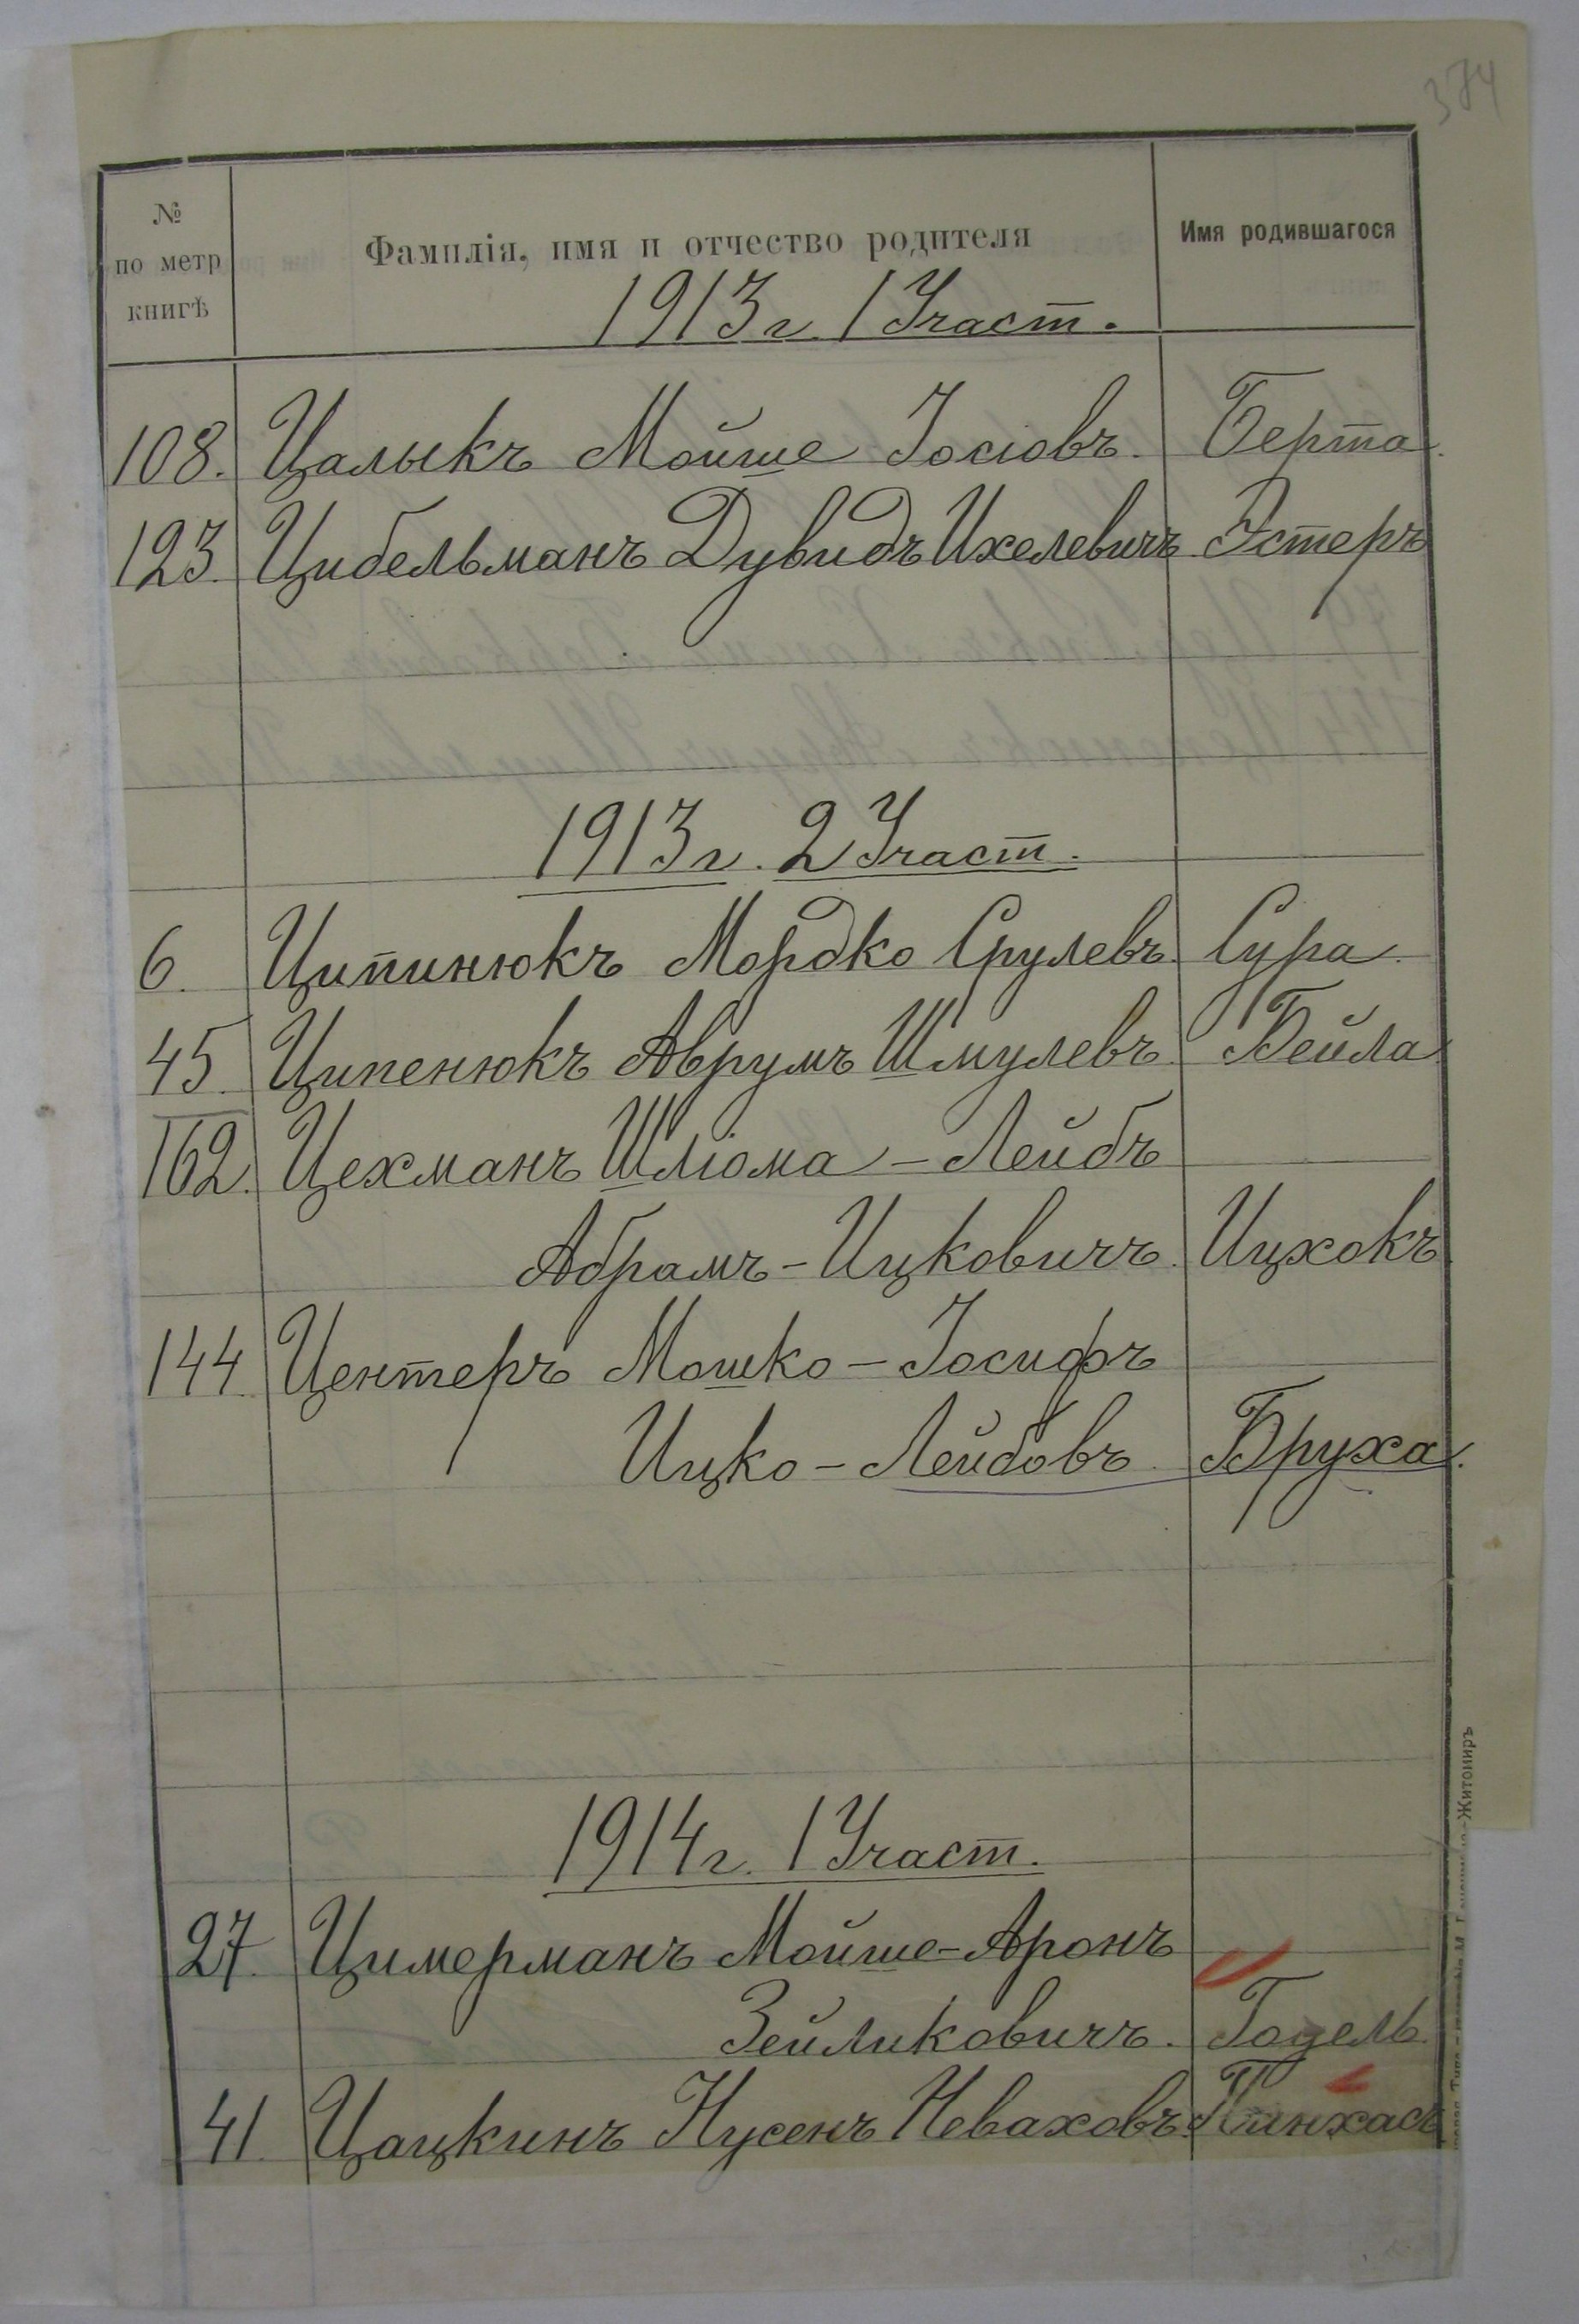 374
№
по метр
книгѣ
Фамилія, имя и отчество родителя
Имя родившагося
1913 г. 1 Участ.
108. Цалыкъ Мойше Іосіовъ. Берта.
123. Цибельманъ Дувидъ Ихелевичъ Эстеръ
1913 г. 2 Участ.
6. Ципинюкъ Мордко Срулевъ. Сура.
45. Ципенюкъ Аврумъ Шмулевъ. Бейла
162. Цехманъ Шліома - Лейбъ
Абрамъ - Ицковичъ. Ицхокъ.
144. Центеръ Мошко - Іосифъ
Ицко - Лейбовъ. Бруха.
1914 г. 1 Участ.
27. Цимерманъ Мойше-Аронъ
Зейликовичъ. Годель.
41. Цацкинъ Нусенъ Неваховъ. Пинхасъ
Житомиръ